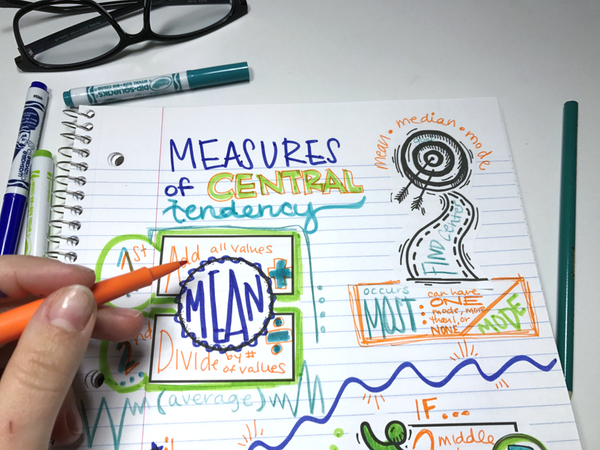 PIP-SQUEAKS
mean • median • mode
MEASURES
of CENTRAL
tendency
FIND center
1st
Add all values
MEAN
2nd
Divide by #
of values
(average)
occurs
MOST
can have
ONE
mode, more
than 1, or
NONE
MODE
IF...
2 middle